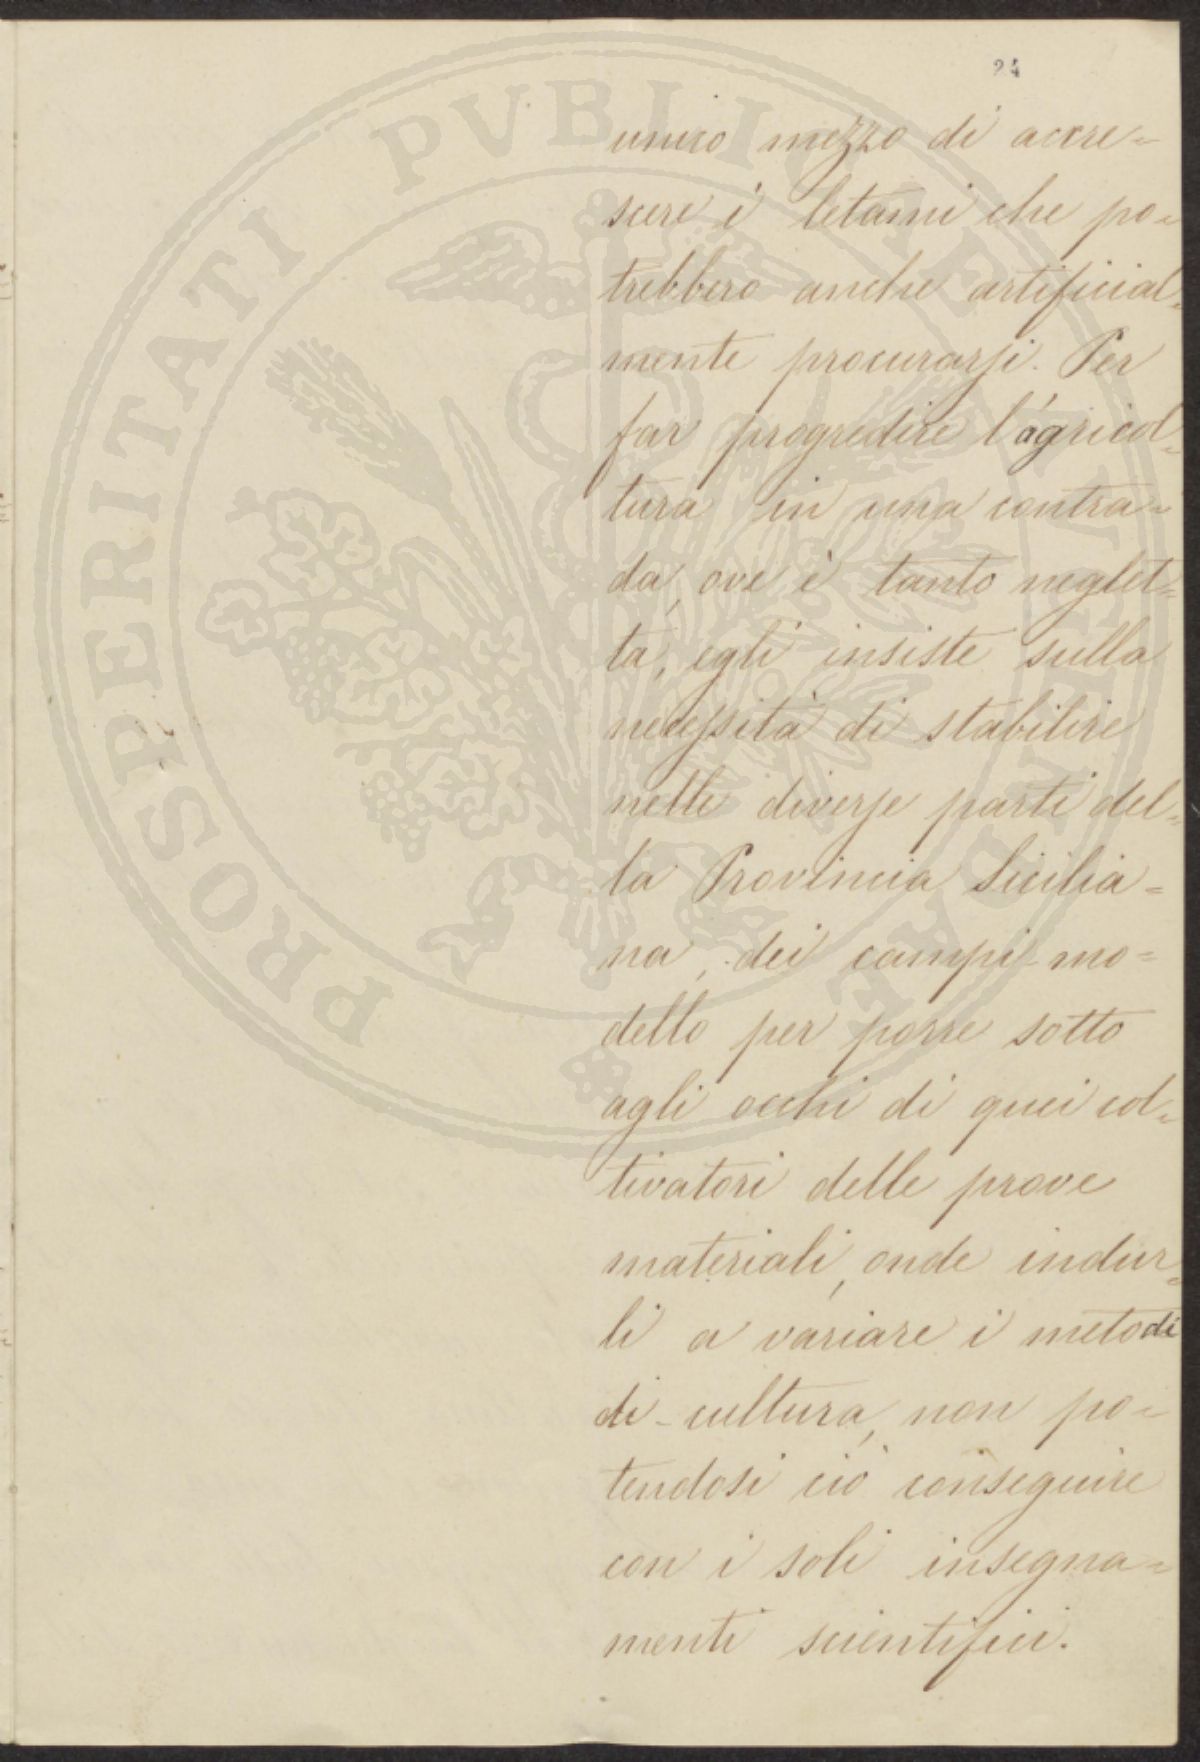 24
unico mezzo di accre=
scere i letami che po=
trebbero anche artificial=
mente procurarsi. Per
far progredire l'agricol=
tura in una contra=
da, ove è tanto neglet=
ta, egli insiste sulla
necessità di stabilire
nelle diverse parti del=
la Provincia Sicilia=
na, dei campi-mo=
dello per porre sotto
agli occhi di quei col=
tivatori delle prove
materiali, onde indur=
li a variare i metodi
di cultura, non po=
tendosi ciò conseguire
con i soli insegna=
menti scientifici.
PROSPERITATI PVBLICAE AVGENDAE